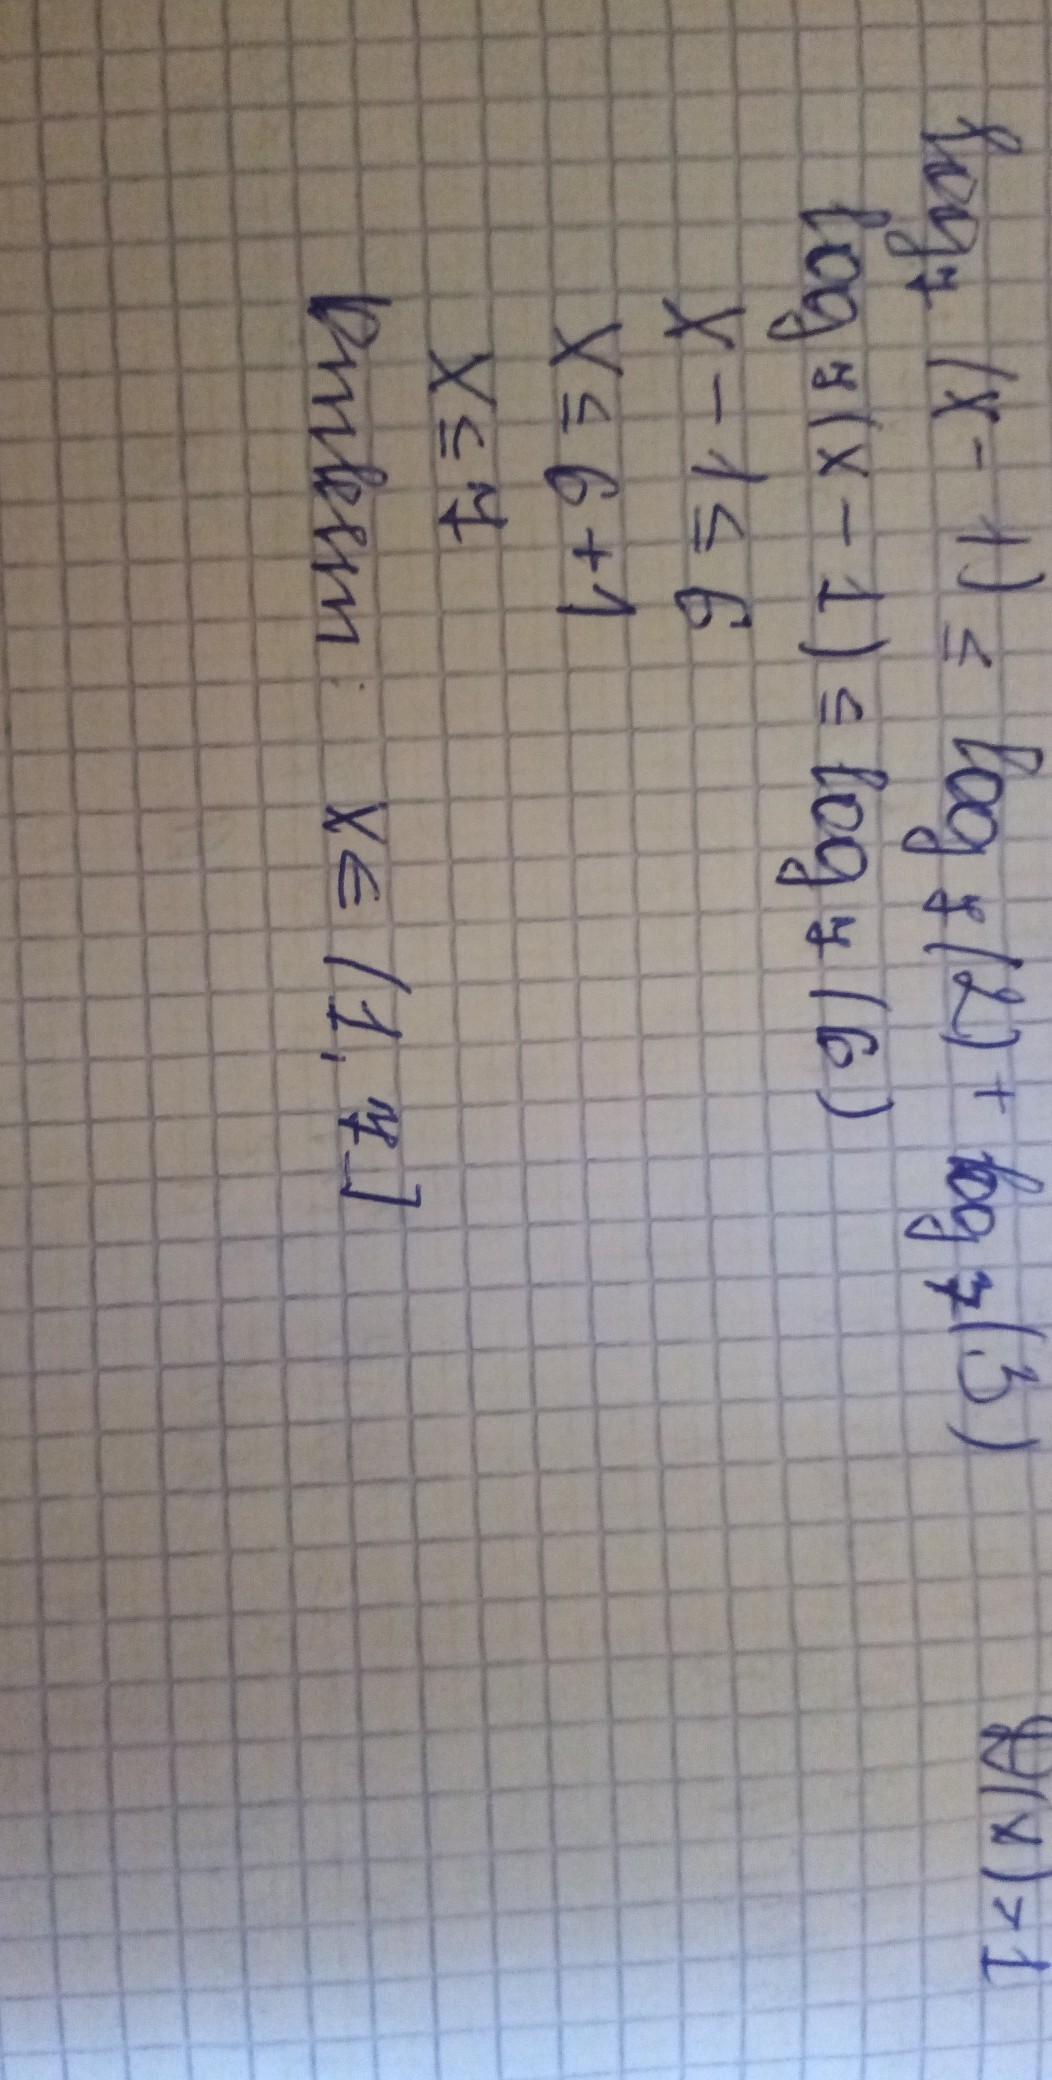 log₇(x-1) ≤ log₇(2) + log₇(3) D(x) > 1
log₇(x-1) ≤ log₇(6)
x - 1 ≤ 6
x ≤ 6 + 1
x ≤ 7
Ответ: x ∈ (1, 7]